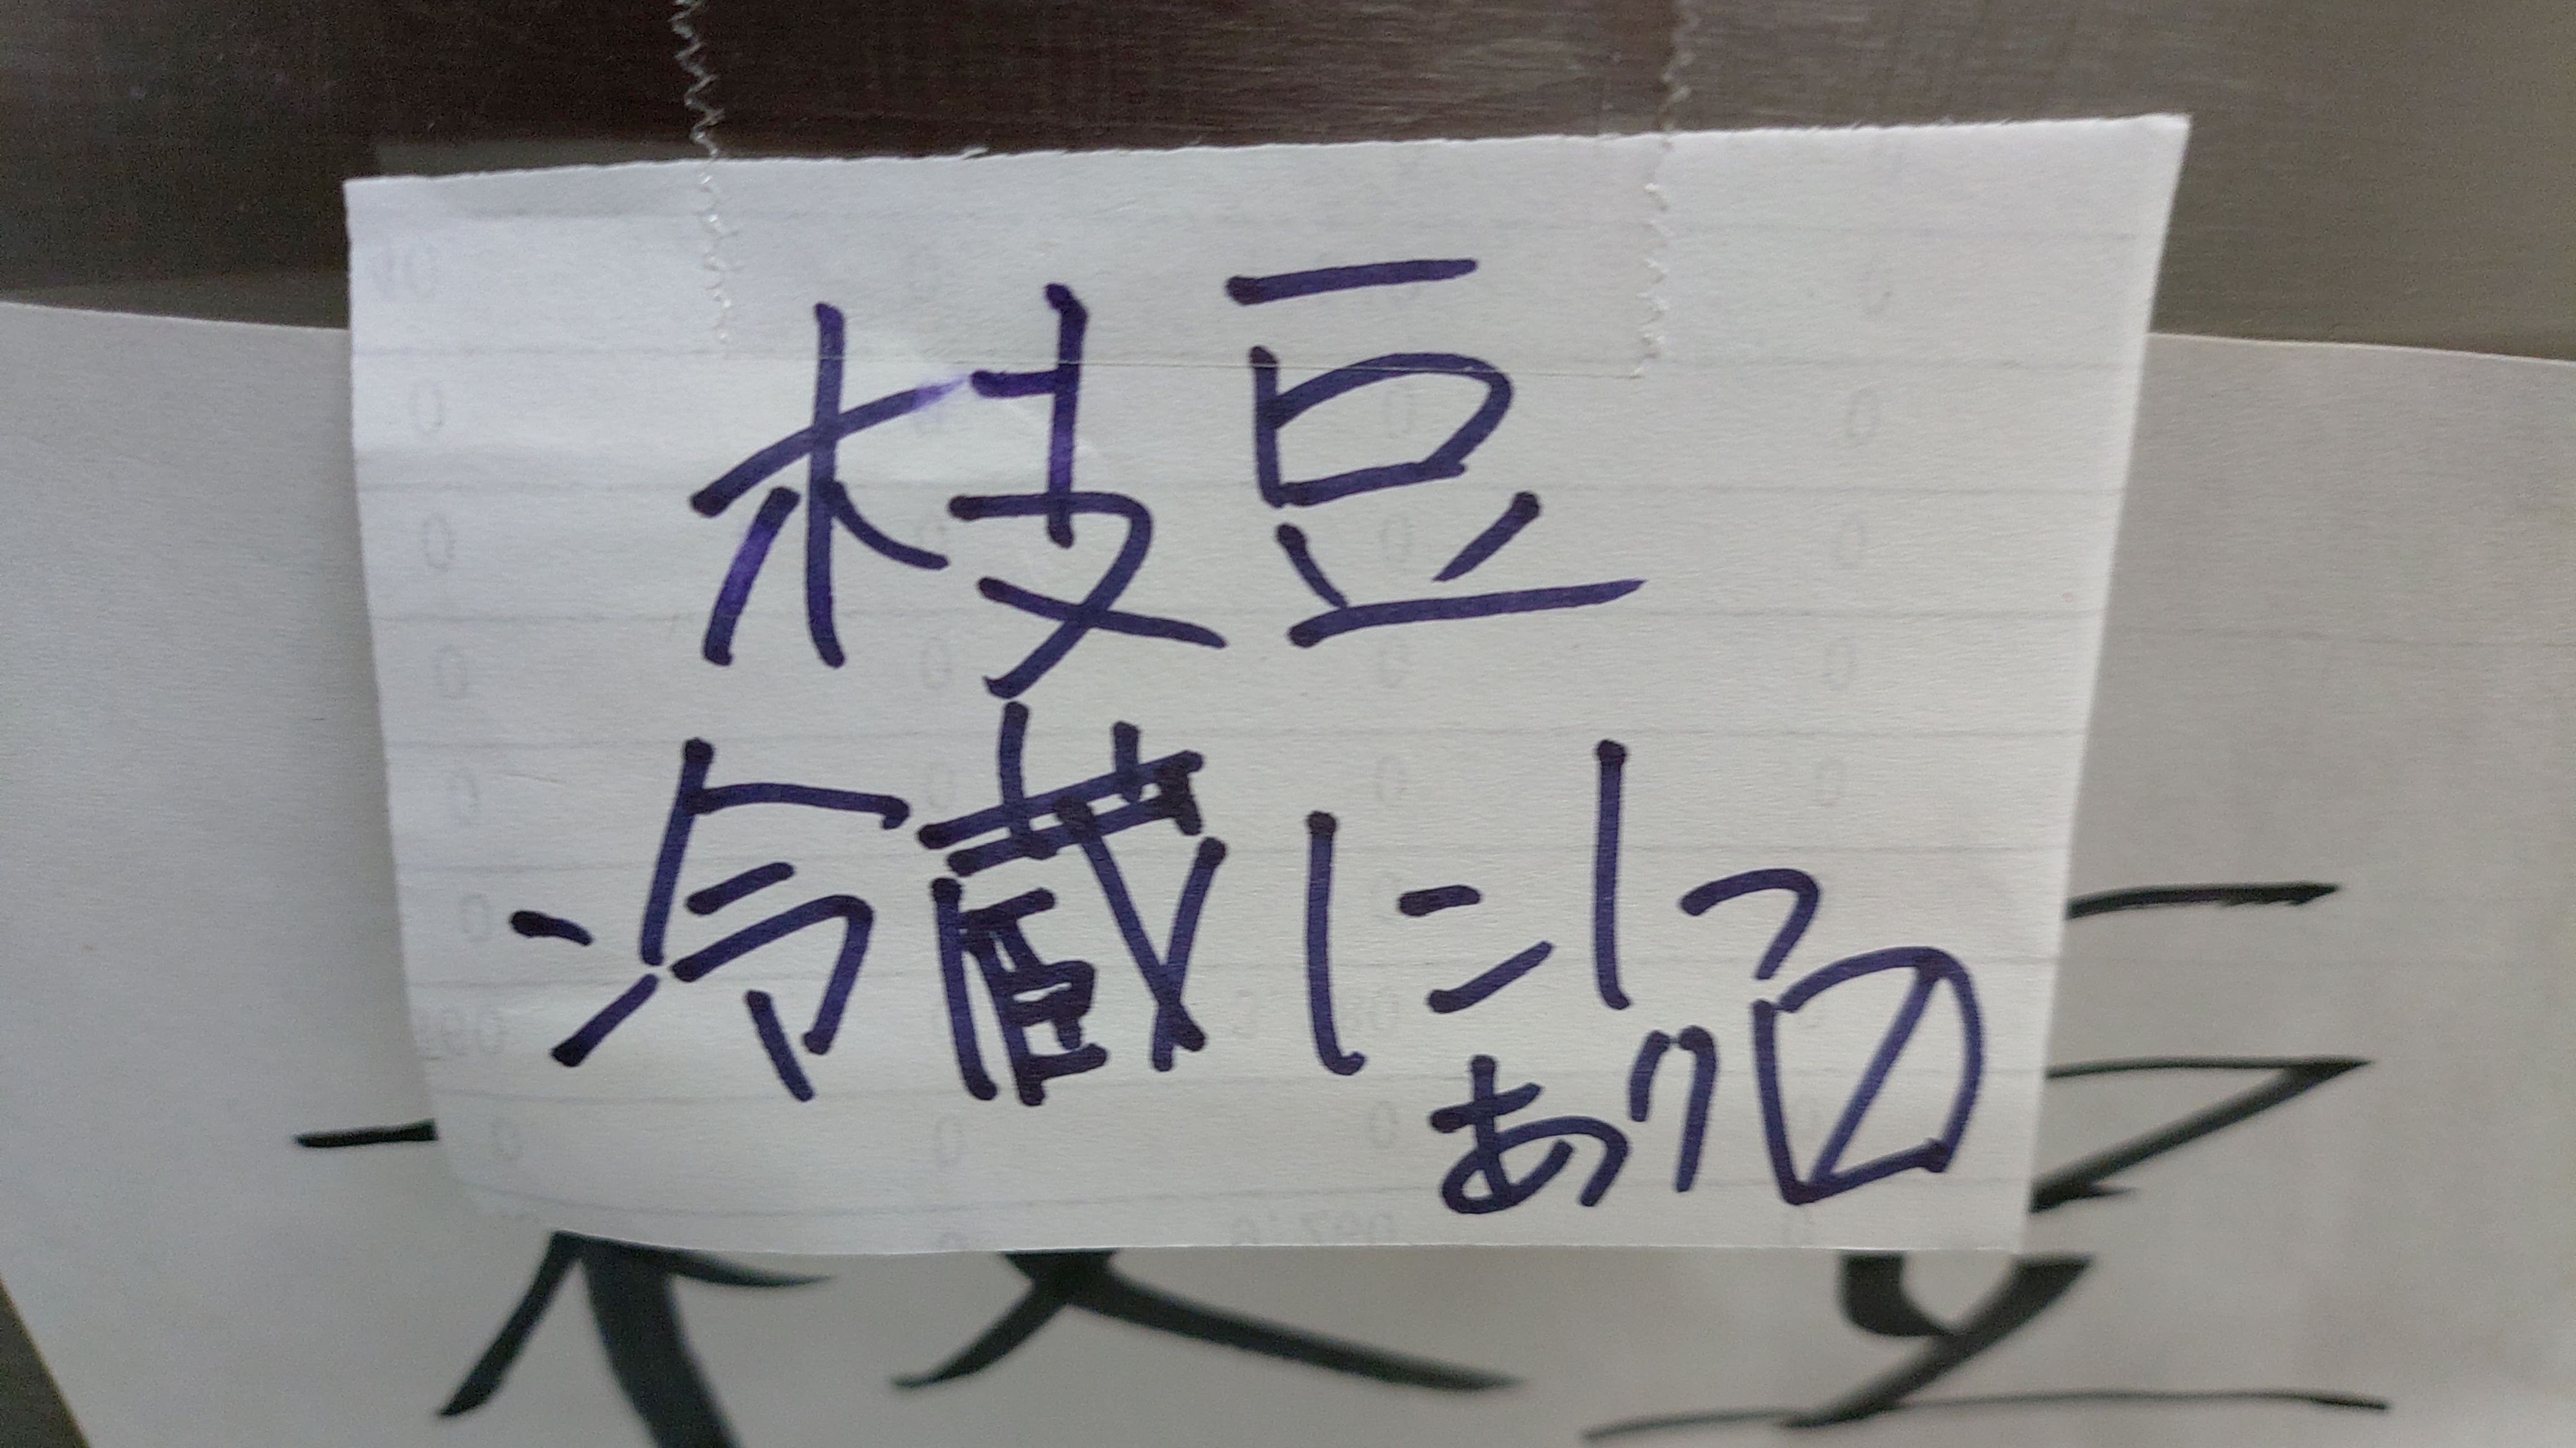 枝豆
冷蔵に1つ
あり〼